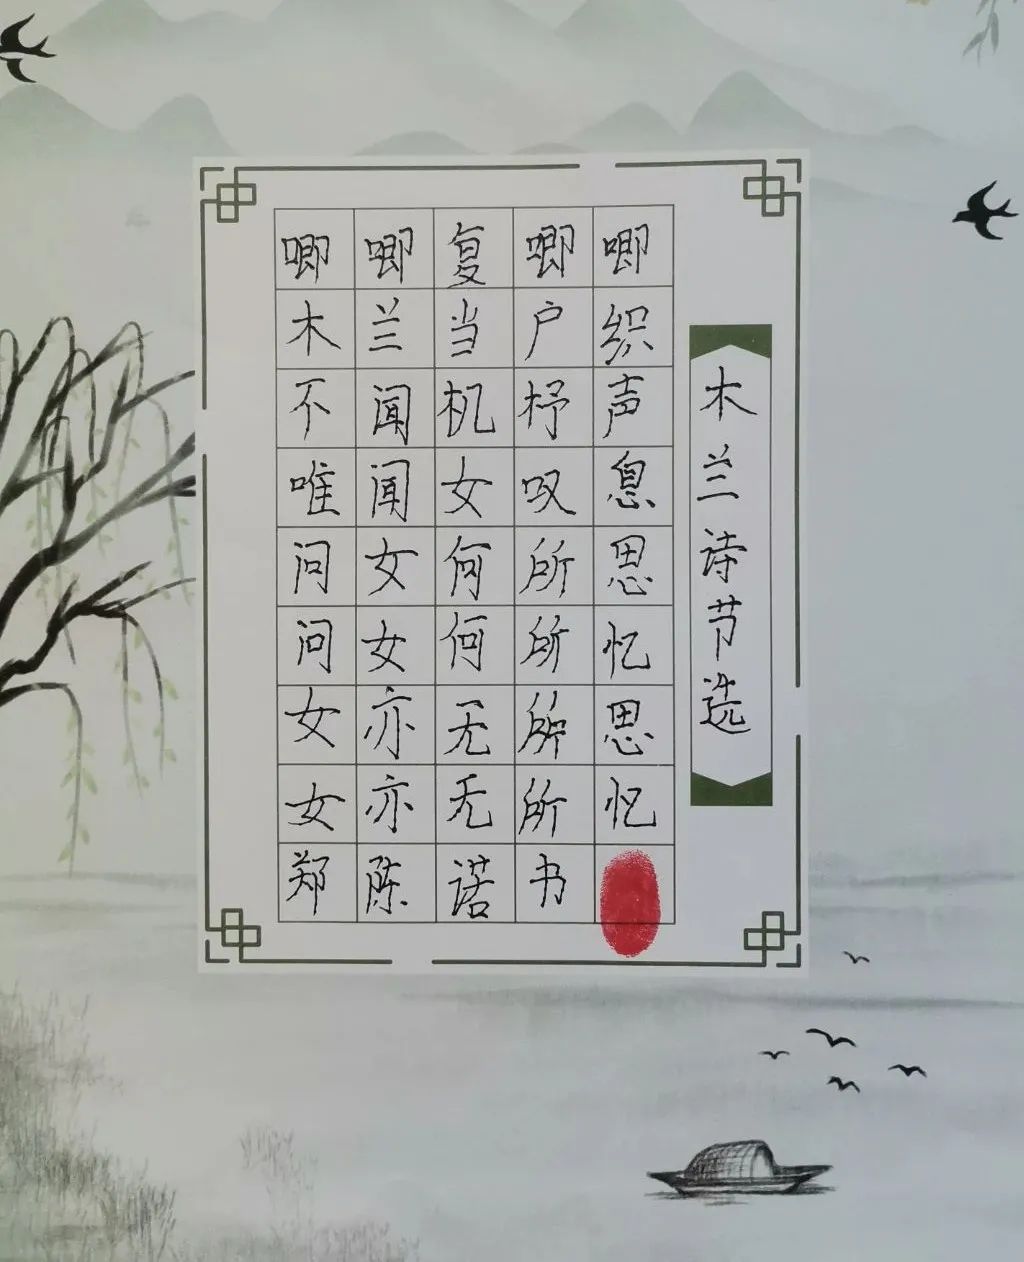 木兰诗节选
唧唧复唧唧
木兰当户织
不闻机杼声
唯闻女叹息
问女何所思
问女何所忆
女亦无所思
女亦无所忆
郑陈诺书